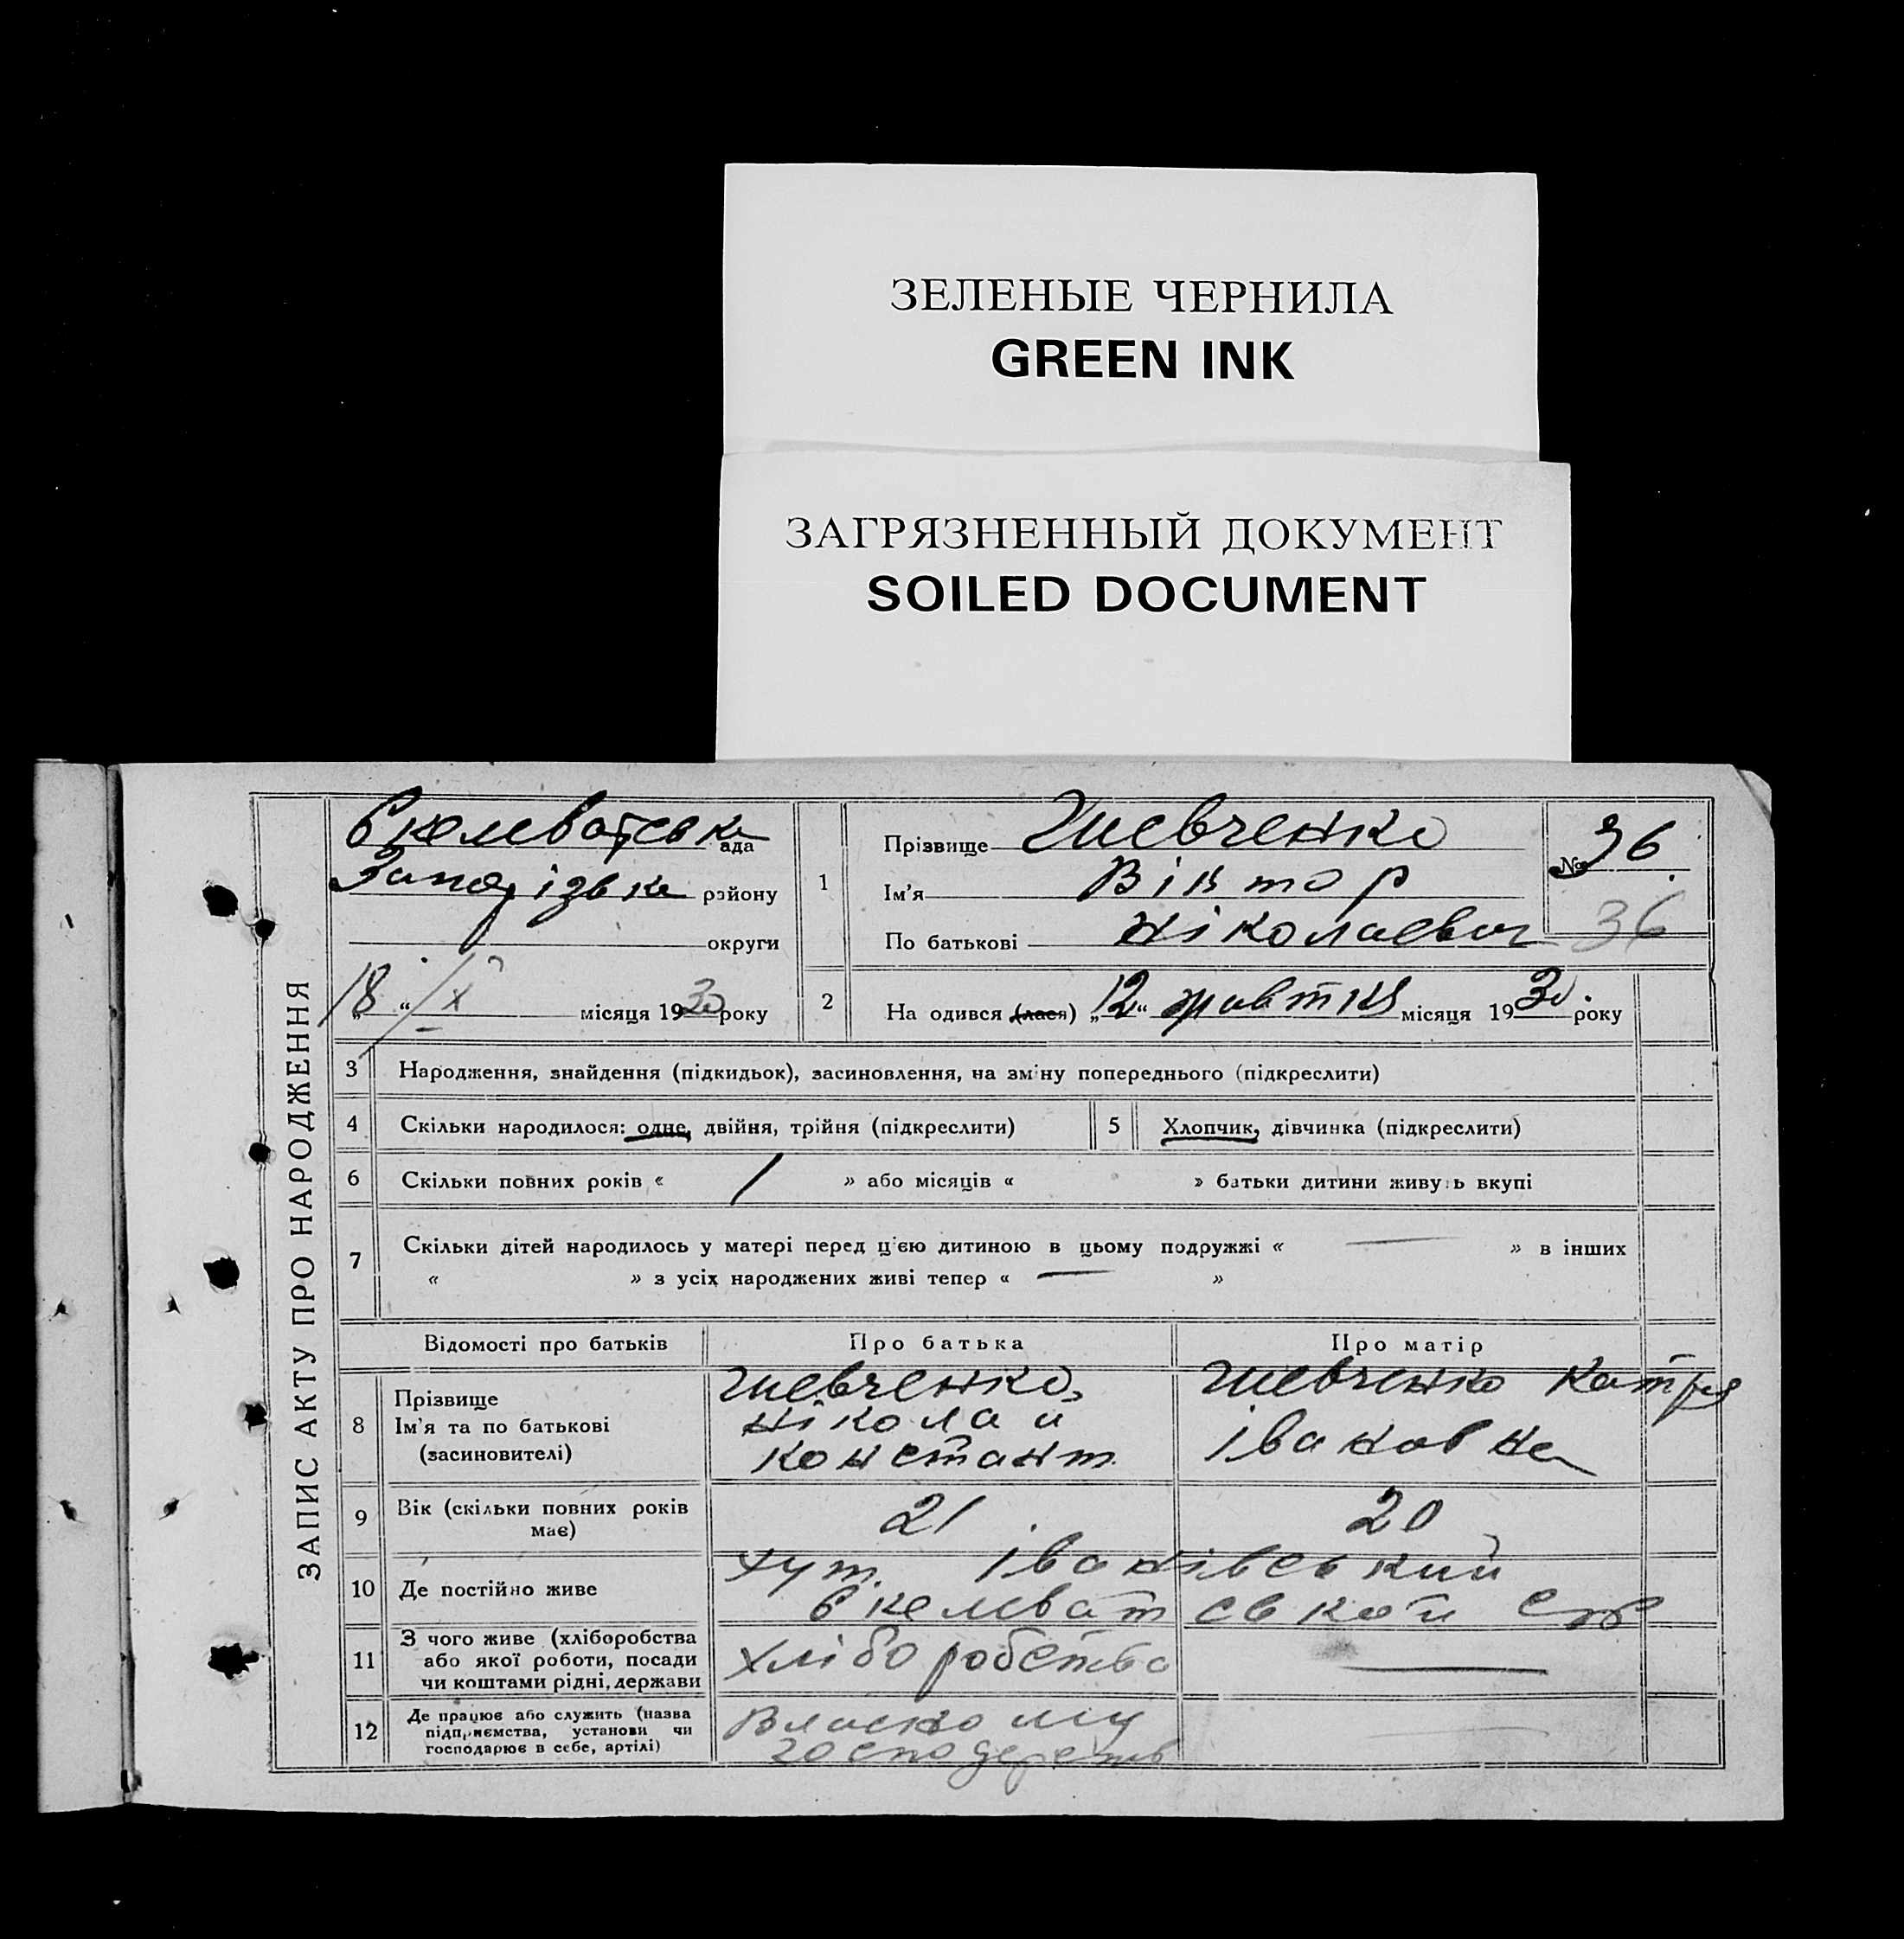 ЗЕЛЕНЫЕ ЧЕРНИЛА
GREEN INK
ЗАГРЯЗНЕННЫЙ ДОКУМЕНТ
SOILED DOCUMENT
ЗАПИС АКТУ ПРО НАРОДЖЕННЯ
Скелеватська ада
району
округи
18 „ “ X місяця 1930 року
1
Прізвище Шевченко
Ім'я Віктор
По батькові Ніколаевич
№ 36
36
2 На одився (лася) „12“ жовтня місяця 1930 року
3 Народження, знайдення (підкидьок), засиновлення, на зміну попереднього (підкреслити)
4 Скільки народилося: одне, двійня, трійня (підкреслити) 5 Хлопчик, дівчинка (підкреслити)
6 Скільки повних років « 1 » або місяців « » батьки дитини живуть вкупі
7 Скільки дітей народилось у матері перед цією дитиною в цьому подружжі « — » в інших
« » з усіх народжених живі тепер « — »
Відомості про батьків Про батька Про матір
8 Прізвище
Ім'я та по батькові
(засиновителі)
Шевченко,
Ніколай
Констант.
Шевченко Катря
Івановна
9 Вік (скільки повних років
має) 21 20
10 Де постійно живе хут. Іванівський
Скелеватської с/р
11 З чого живе (хліборобства
або якої роботи, посади
чи коштами рідні, держави
хліборобства —
12 Де працює або служить (назва
підприємства, установи чи
господарює в себе, артілі)
Власному
господарств